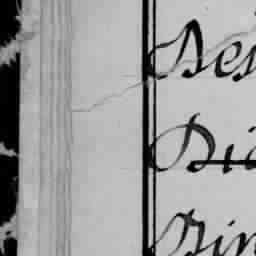 Des
Dia
Din